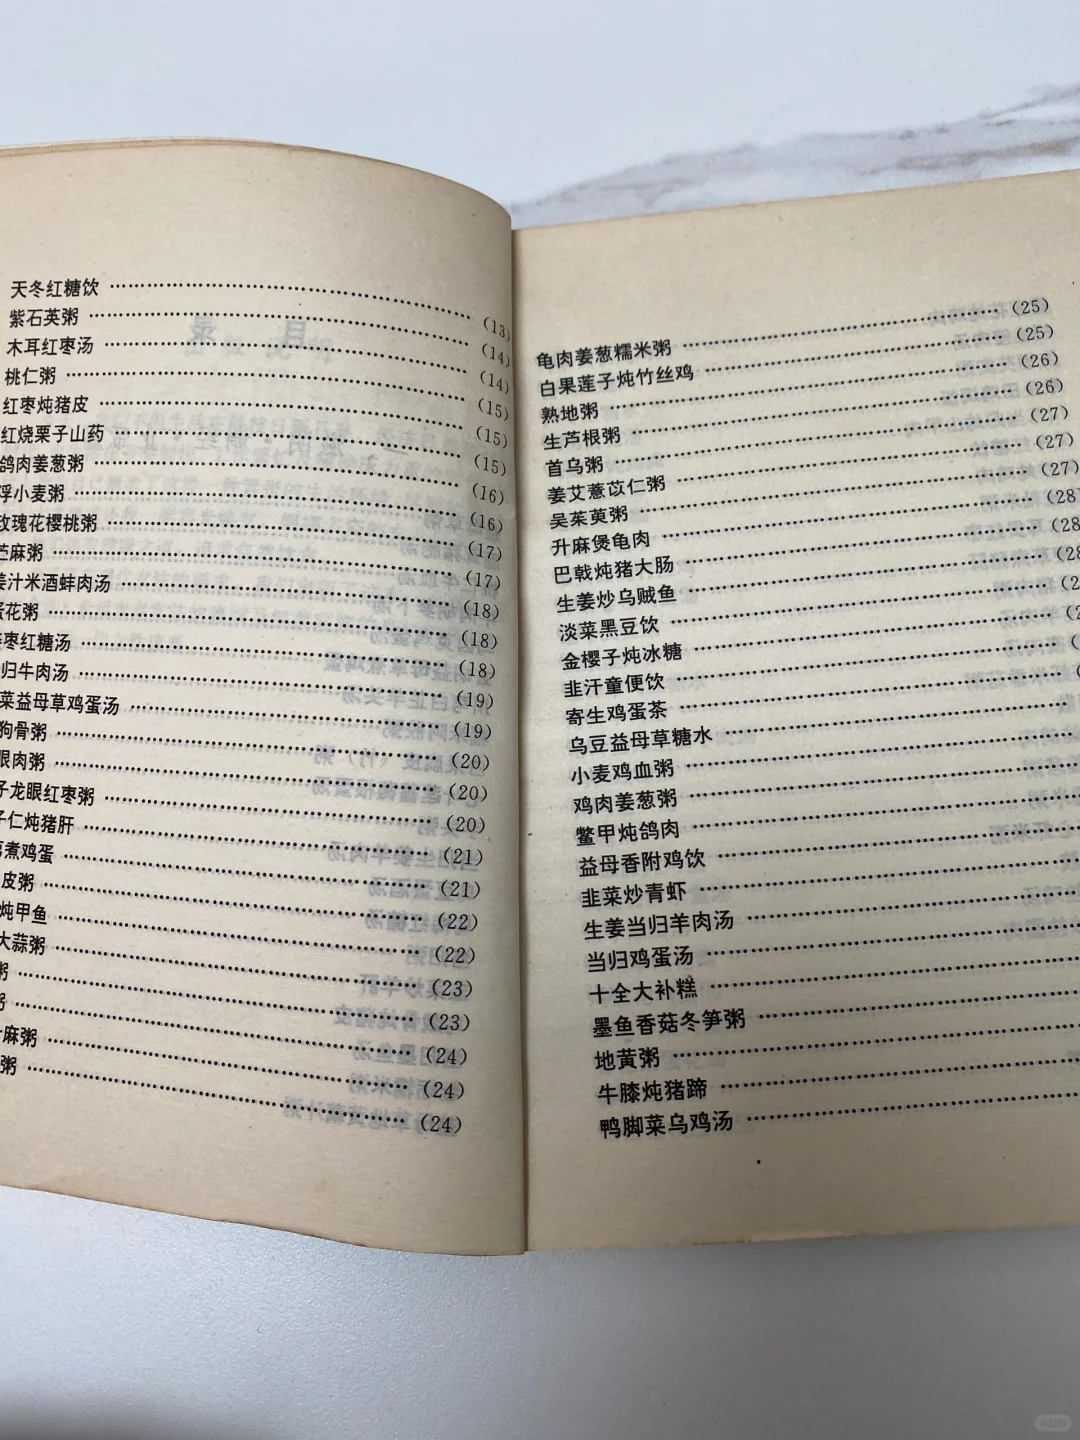 天冬红糖饮 ……………………………… (13)
紫石英粥 ……………………………… (14)
木耳红枣汤 ……………………………… (14)
桃仁粥 ……………………………… (15)
红枣炖猪皮 ……………………………… (15)
红烧栗子山药 ……………………………… (15)
鸽肉姜葱粥 ……………………………… (16)
浮小麦粥 ……………………………… (16)
玫瑰花樱桃粥 ……………………………… (17)
麻粥 ……………………………… (17)
姜汁米酒蚌肉汤 ……………………………… (18)
蛋花粥 ……………………………… (18)
枣红糖汤 ……………………………… (18)
归牛肉汤 ……………………………… (19)
菜益母草鸡蛋汤 ……………………………… (19)
狗骨粥 ……………………………… (20)
眼肉粥 ……………………………… (20)
子龙眼红枣粥 ……………………………… (20)
子仁炖猪肝 ……………………………… (21)
煮鸡蛋 ……………………………… (21)
皮粥 ……………………………… (22)
炖甲鱼 ……………………………… (22)
大蒜粥 ……………………………… (23)
粥 ……………………………… (23)
粥 ……………………………… (24)
麻粥 ……………………………… (24)
粥 ……………………………… (24)
龟肉姜葱糯米粥 ……………………………… (25)
白果莲子炖竹丝鸡 ……………………………… (25)
熟地粥 ……………………………… (26)
生芦根粥 ……………………………… (26)
首乌粥 ……………………………… (27)
姜艾薏苡仁粥 ……………………………… (27)
吴茱萸粥 ……………………………… (27)
升麻煲龟肉 ……………………………… (28)
巴戟炖猪大肠 ……………………………… (28
生姜炒乌贼鱼 ……………………………… (2
淡菜黑豆饮 ………………………………
金樱子炖冰糖 ………………………………
韭汗童便饮 ………………………………
寄生鸡蛋茶 ………………………………
乌豆益母草糖水 ………………………………
小麦鸡血粥 ………………………………
鸡肉姜葱粥 ………………………………
鳖甲炖鸽肉 ………………………………
益母香附鸡饮 ………………………………
韭菜炒青虾 ………………………………
生姜当归羊肉汤 ………………………………
当归鸡蛋汤 ………………………………
十全大补糕 ………………………………
墨鱼香菇冬笋粥 ………………………………
地黄粥 ………………………………
牛膝炖猪蹄 ………………………………
鸭脚菜乌鸡汤 ………………………………